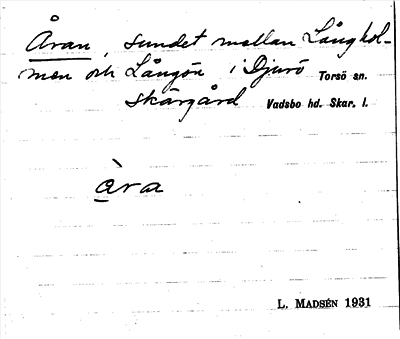 Åran, sundet mellan Långhol-
men och Långön i Djurö Torsö sn.
skärgård Vadsbo hd. Skar. l.
àra
L. MADSÉN 1931